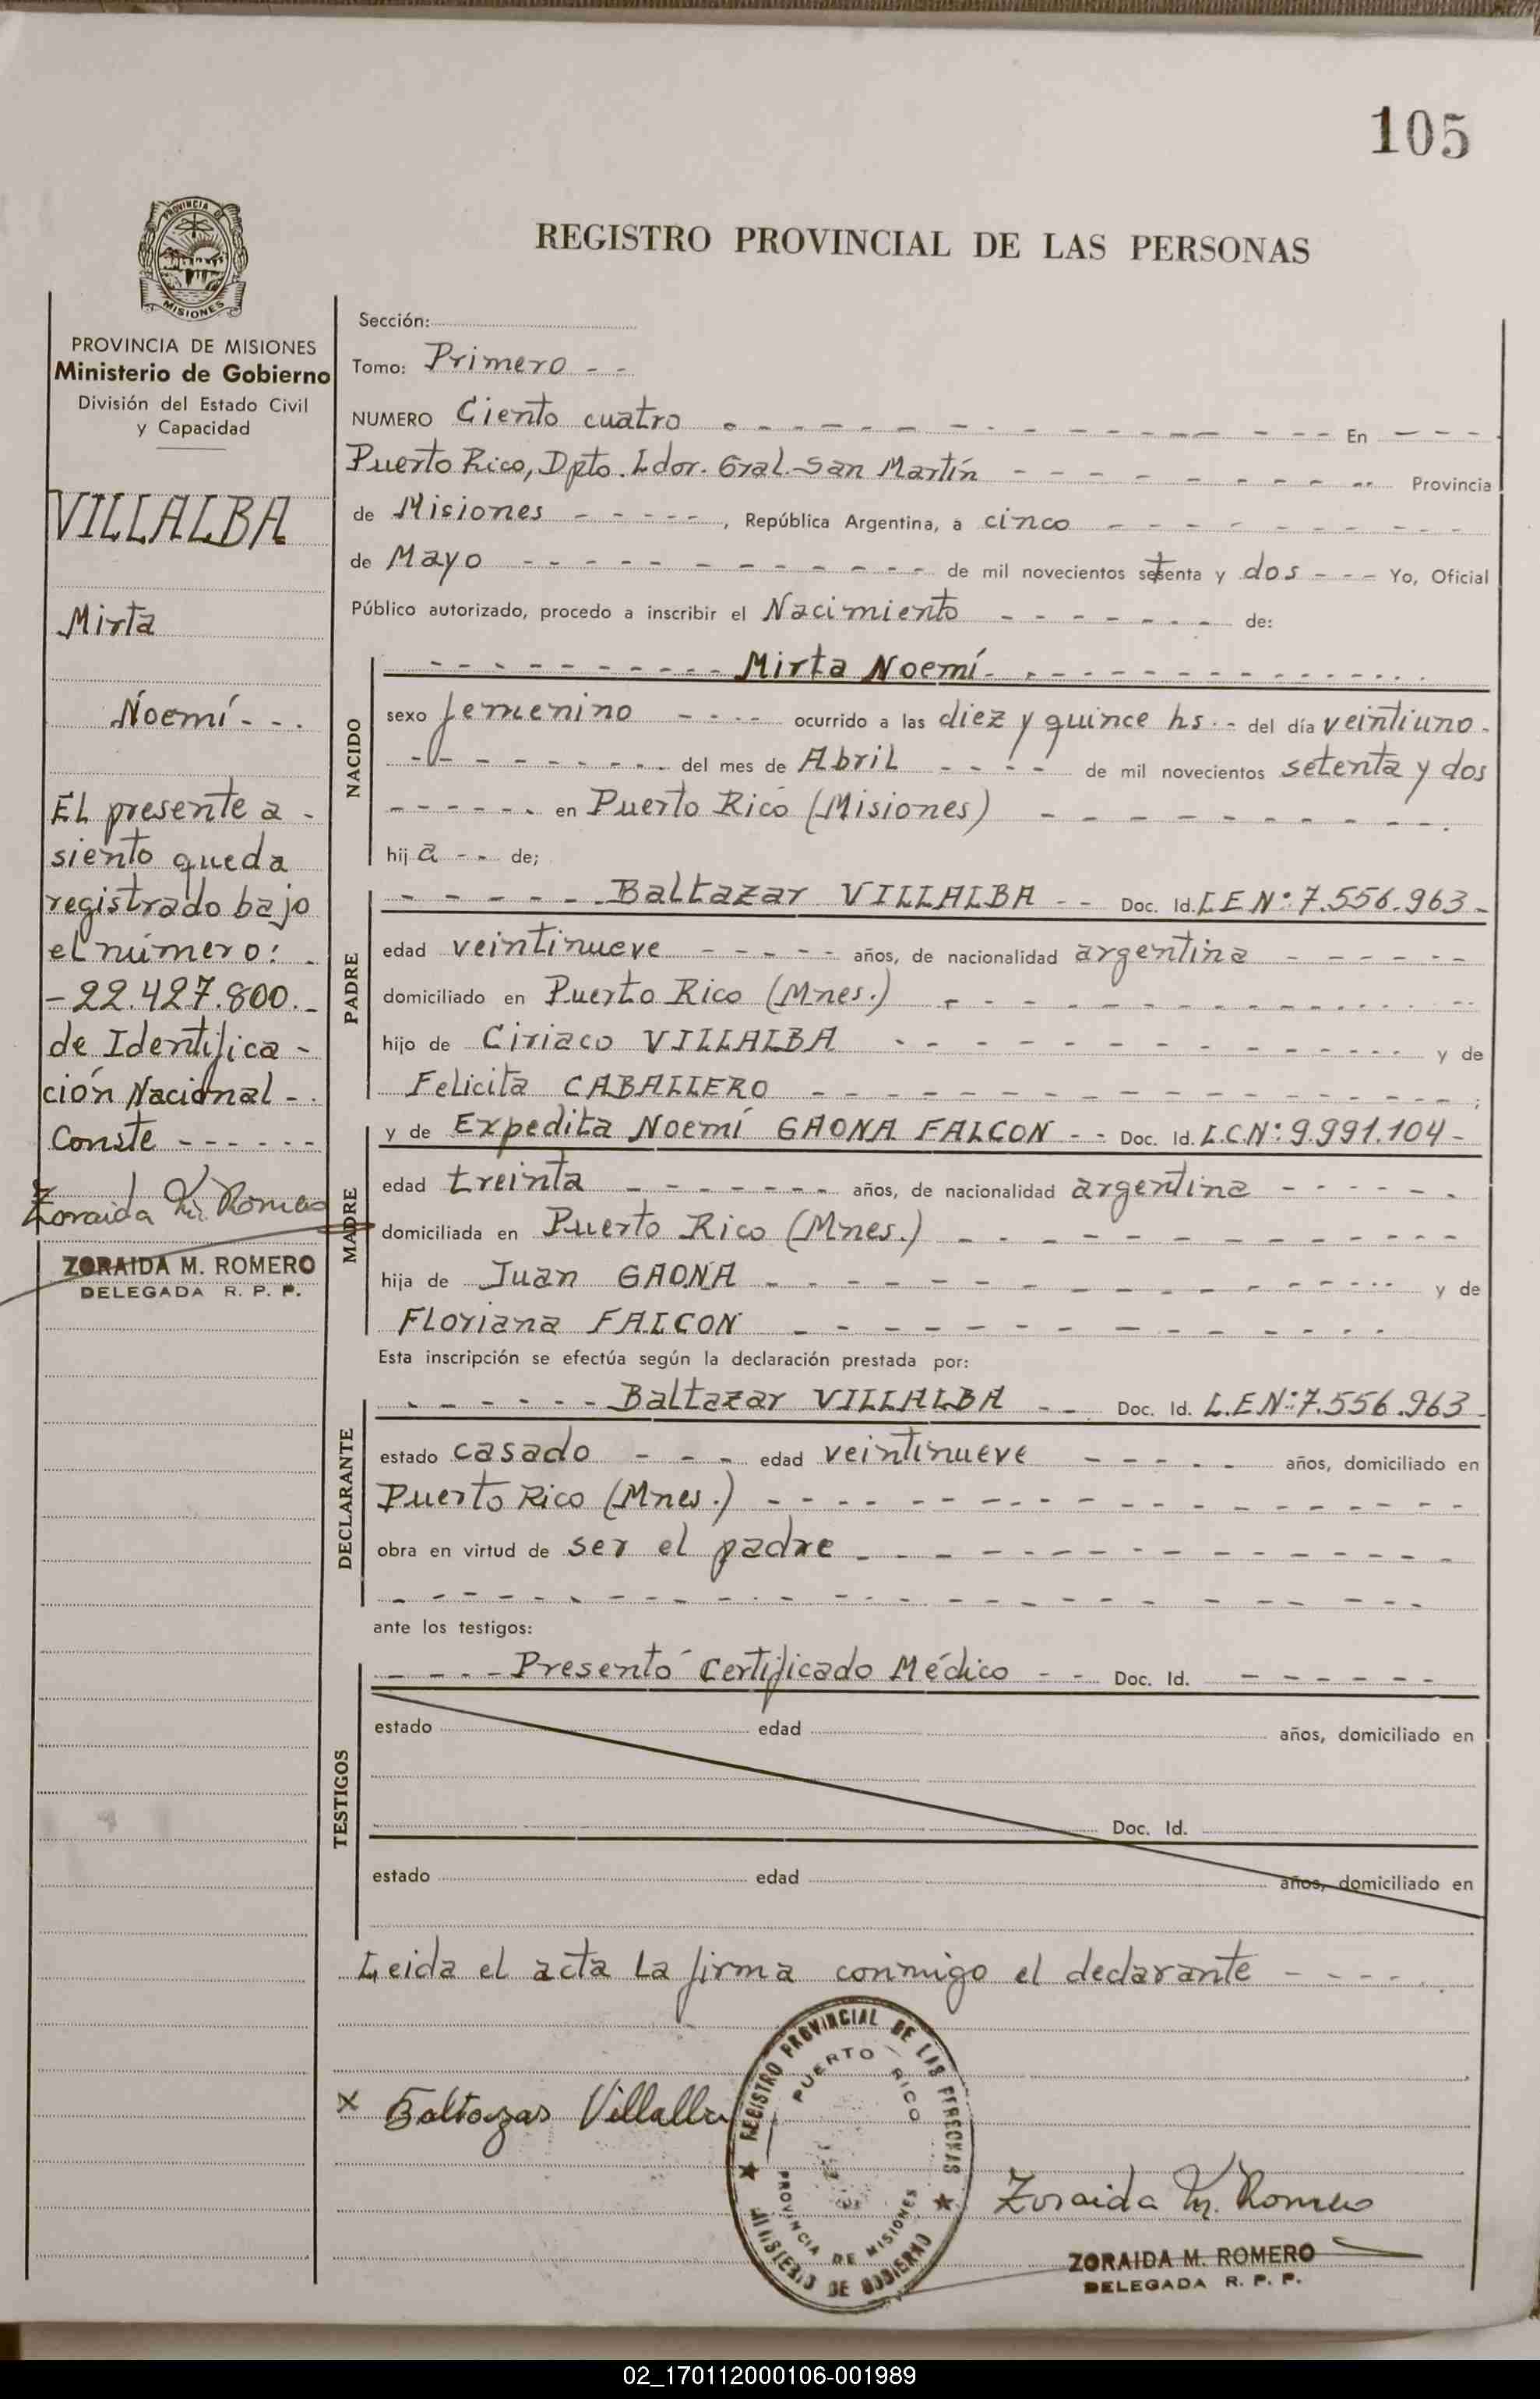 105
PROVINCIA DE
MISIONES
REGISTRO PROVINCIAL DE LAS PERSONAS
PROVINCIA DE MISIONES
Ministerio de Gobierno
División del Estado Civil
y Capacidad
VILLALBA
Mirta
Noemí - - -
El presente a -
siento queda
registrado bajo
el número: -
- 22.427.800. -
de Identifica -
ción Nacional - -
Conste - - - - - -
Zoraida M. Romero
ZORAIDA M. ROMERO
DELEGADA R. P. P.
Sección:
Tomo: Primero - -
NUMERO Ciento cuatro - - - - - - - - - - - - - - En - - - -
Puerto Rico, Dpto. Ldor. Gral. San Martín - - - - - - - - - Provincia
de Misiones - - - - - -, República Argentina, a cinco - - - - - - - - -
de Mayo - - - - - - - - - - - - de mil novecientos setenta y dos - - - Yo, Oficial
Público autorizado, procedo a inscribir el Nacimiento - - - - - - - - de:
NACIDO
- - - - - - - - - - Mirta Noemí - - - - - - - - - - - - - -
sexo femenino - - - - ocurrido a las diez y quince hs. - - del día veintiuno -
- - - - - - - - - del mes de Abril - - - - de mil novecientos setenta y dos
- - - - - - - en Puerto Rico (Misiones) - - - - - - - - - -
hij a - - de;
PADRE
- - - - - - Baltazar VILLALBA - - Doc. Id. L E Nº: 7.556.963 -
edad veintinueve - - - - - años, de nacionalidad argentina - - - - - -
domiciliado en Puerto Rico (Mnes.) - - - - - - - - - - - -
hijo de Ciriaco VILLALBA - - - - - - - - - - - - - y de
Felicita CABALLERO - - - - - - - - - - - - - - - ;
MADRE
y de Expedita Noemí GAONA FALCON - - Doc. Id. L.C Nº: 9.991.104 -
edad treinta - - - - - - - años, de nacionalidad argentina - - - - - -
domiciliada en Puerto Rico (Mnes.) - - - - - - - - - - - -
hija de Juan GAONA - - - - - - - - - - - - - - y de
Floriana FALCON - - - - - - - - - - - - - -
Esta inscripción se efectúa según la declaración prestada por:
DECLARANTE
- - - - - - Baltazar VILLALBA - - Doc. Id. L.E Nº: 7.556.963 -
estado casado - - - edad veintinueve - - - - - años, domiciliado en
Puerto Rico (Mnes.) - - - - - - - - - - - - - - - - -
obra en virtud de ser el padre - - - - - - - - - - - - - -
- - - - - - - - - - - - - - - - - - - - - - -
ante los testigos:
TESTIGOS
- - - - - Presentó Certificado Médico - - Doc. Id. - - - - - -
estado edad años, domiciliado en
Doc. Id.
estado edad años, domiciliado en
Leida el acta la firma conmigo el declarante - - - - -
x Baltazar Villalba
REGISTRO PROVINCIAL DE LAS PERSONAS
PUERTO RICO
PROVINCIA DE MISIONES
MINISTERIO DE GOBIERNO
Zoraida M. Romero
ZORAIDA M. ROMERO
DELEGADA R. P. P.
02_170112000106-001989